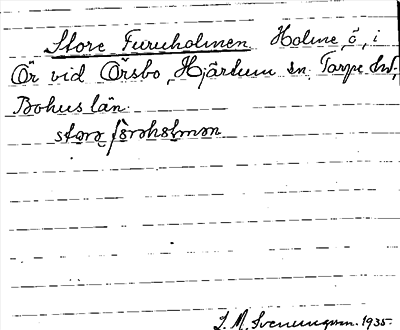 Store Furuholmen Holme, ö, i
Ör vid Örsbo, Hjärtum sn. Torpe hd,
Bohuslän.
S. M. Svenungsson. 1935.